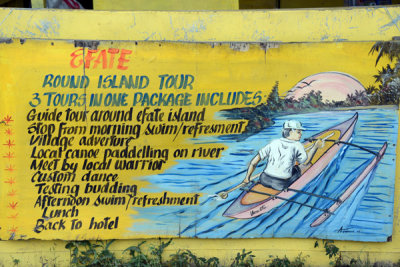 EFATE
ROUND ISLAND TOUR
3 TOURS IN ONE PACKAGE INCLUDES:
Guide tour around efate island
Stop From morning swim/refresment
Village adverture
Local canoe paddelling on river
Meet by local warrior
Custom dance
Testing budding
Afternoon swim/refreshment
Lunch
Back to hotel